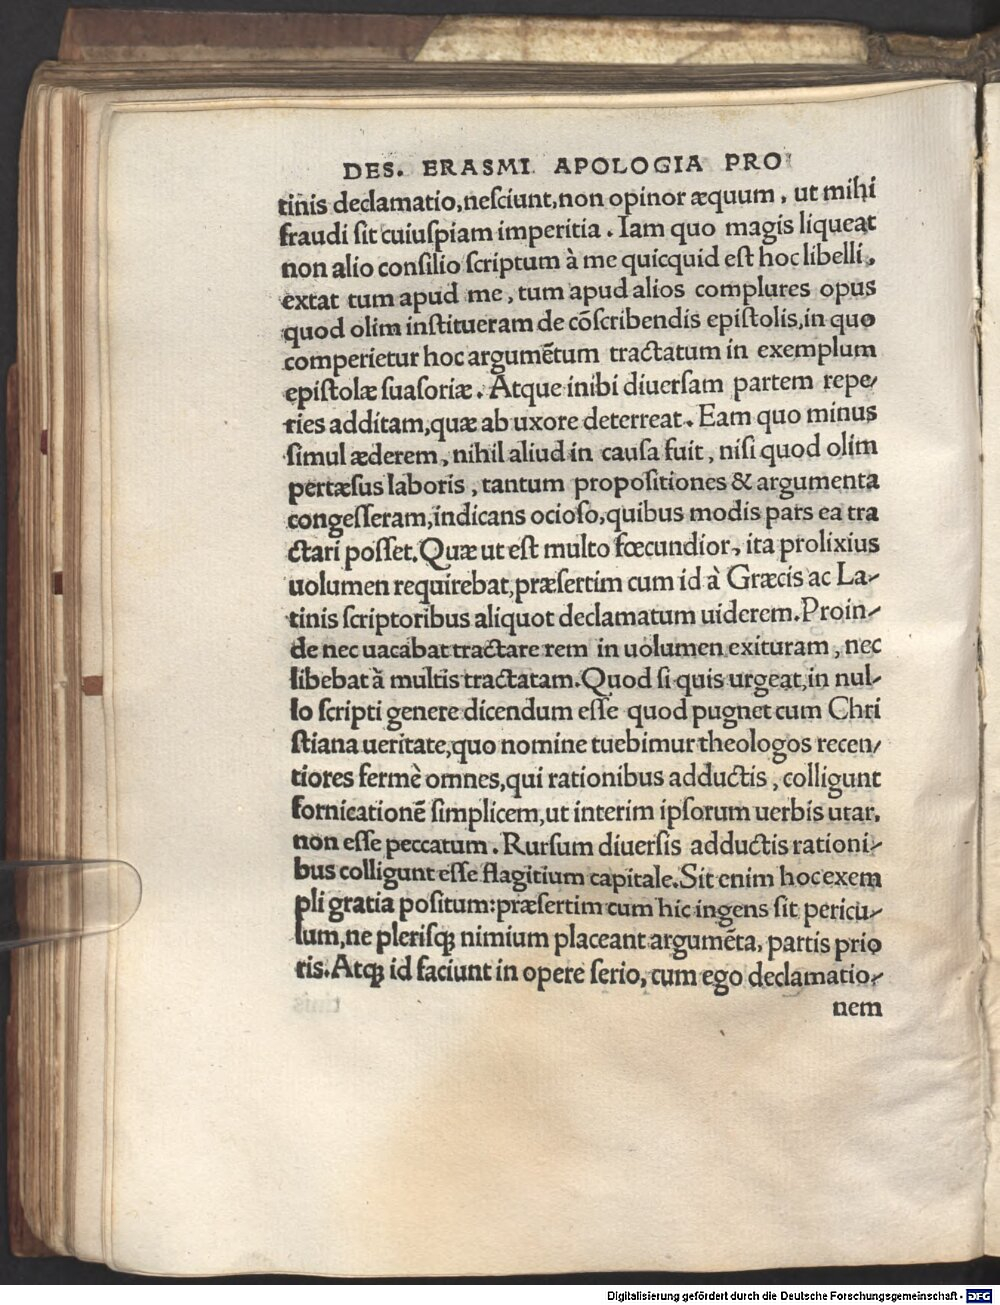 DES. ERASMI APOLOGIA PRO
tinis declamatio,nesciunt,non opinor æquum, ut mihi
fraudi sit cuiuspiam imperitia. Iam quo magis liqueat
non alio consilio scriptum à me quicquid est hoc libelli,
extat tum apud me, tum apud alios complures opus
quod olim institueram de cõscribendis epistolis,in quo
comperietur hoc argumẽtum tractatum in exemplum
epistolæ suasoriæ. Atque inibi diuersam partem repe/
ries additam,quæ ab uxore deterreat. Eam quo minus
simul æderem, nihil aliud in causa fuit, nisi quod olim
pertæsus laboris, tantum propositiones & argumenta
congesseram,indicans ocioso,quibus modis pars ea tra
ctari posset.Quæ ut est multo fœcundior, ita prolixius
uolumen requirebat,præsertim cum id à Græcis ac La/
tinis scriptoribus aliquot declamatum uiderem.Proin/
de nec uacabat tractare rem in uolumen exituram, nec
libebat à multis tractatam.Quod si quis urgeat,in nul/
lo scripti genere dicendum esse quod pugnet cum Chri
stiana ueritate,quo nomine tuebimur theologos recen/
tiores fermè omnes,qui rationibus adductis, colligunt
fornicationẽ simplicem,ut interim ipsorum uerbis utar,
non esse peccatum. Rursum diuersis adductis rationi/
bus colligunt esse flagitium capitale.Sit enim hoc exem
pli gratia positum:præsertim cum hic ingens sit pericu/
lum,ne plerisqꝫ nimium placeant argumẽta, partis prio
ris.Atqꝫ id faciunt in opere serio, cum ego declamatio/
nem
Digitalisierung gefördert durch die Deutsche Forschungsgemeinschaft - DFG